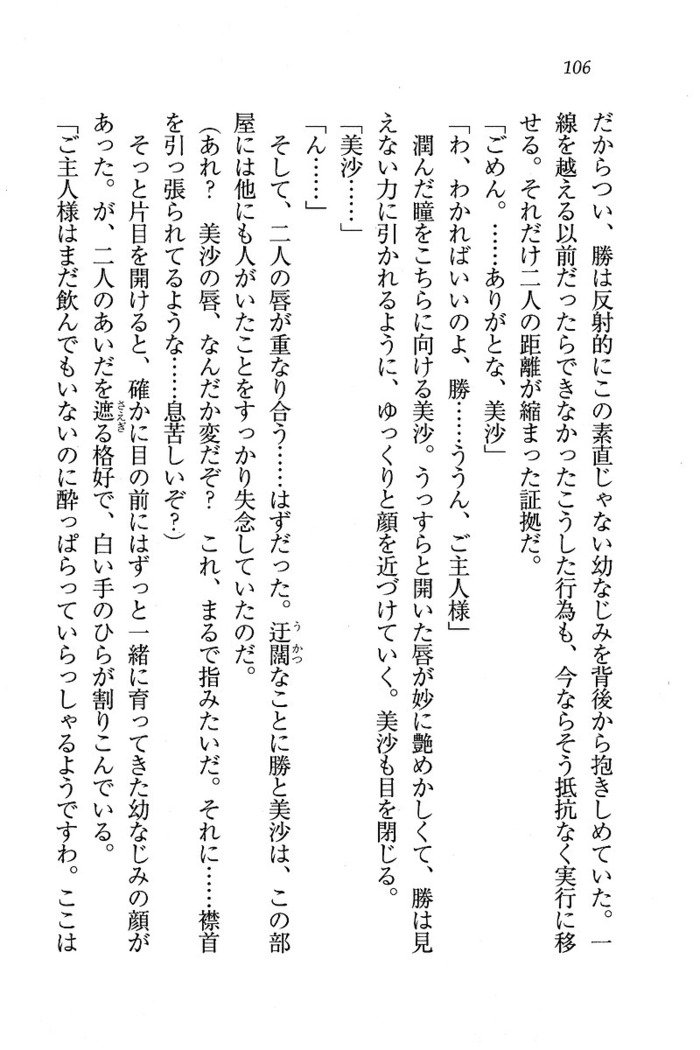 106
だからつい、勝は反射的にこの素直じゃない幼なじみを背後から抱きしめていた。一
線を越える以前だったらできなかったこうした行為も、今ならそう抵抗なく実行に移
せる。それだけ二人の距離が縮まった証拠だ。
「ごめん。……ありがとな、美沙」
「わ、わかればいいのよ、勝……ううん、ご主人様」
潤んだ瞳をこちらに向ける美沙。うっすらと開いた唇が妙に艶めかしくて、勝は見
えない力に引かれるように、ゆっくりと顔を近づけていく。美沙も目を閉じる。
「美沙……」
「ん……」
そして、二人の唇が重なり合う……はずだった。迂闊なことに勝と美沙は、この部
屋には他にも人がいたことをすっかり失念していたのだ。
（あれ？　美沙の唇、なんだか変だぞ？　これ、まるで指みたいだ。それに……襟首
を引っ張られてるような……息苦しいぞ？）
そっと片目を開けると、確かに目の前にはずっと一緒に育ってきた幼なじみの顔が
あった。が、二人のあいだを遮る格好で、白い手のひらが割りこんでいる。
「ご主人様はまだ飲んでもいないのに酔っぱらっていらっしゃるようですわ。ここは